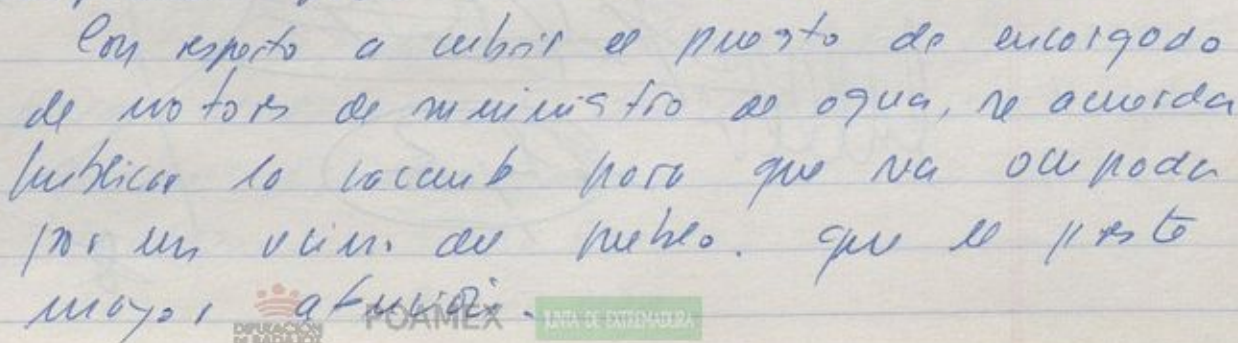 Con respecto a cubrir el puesto de encargado
de motores de suministro de agua, se acuerda
publicar la vacante para que sea ocupada
por un vecino del pueblo. que le preste
mayor atención.
DIPUTACIÓN
DE BADAJOZ
FOAMEX
JUNTA DE EXTREMADURA